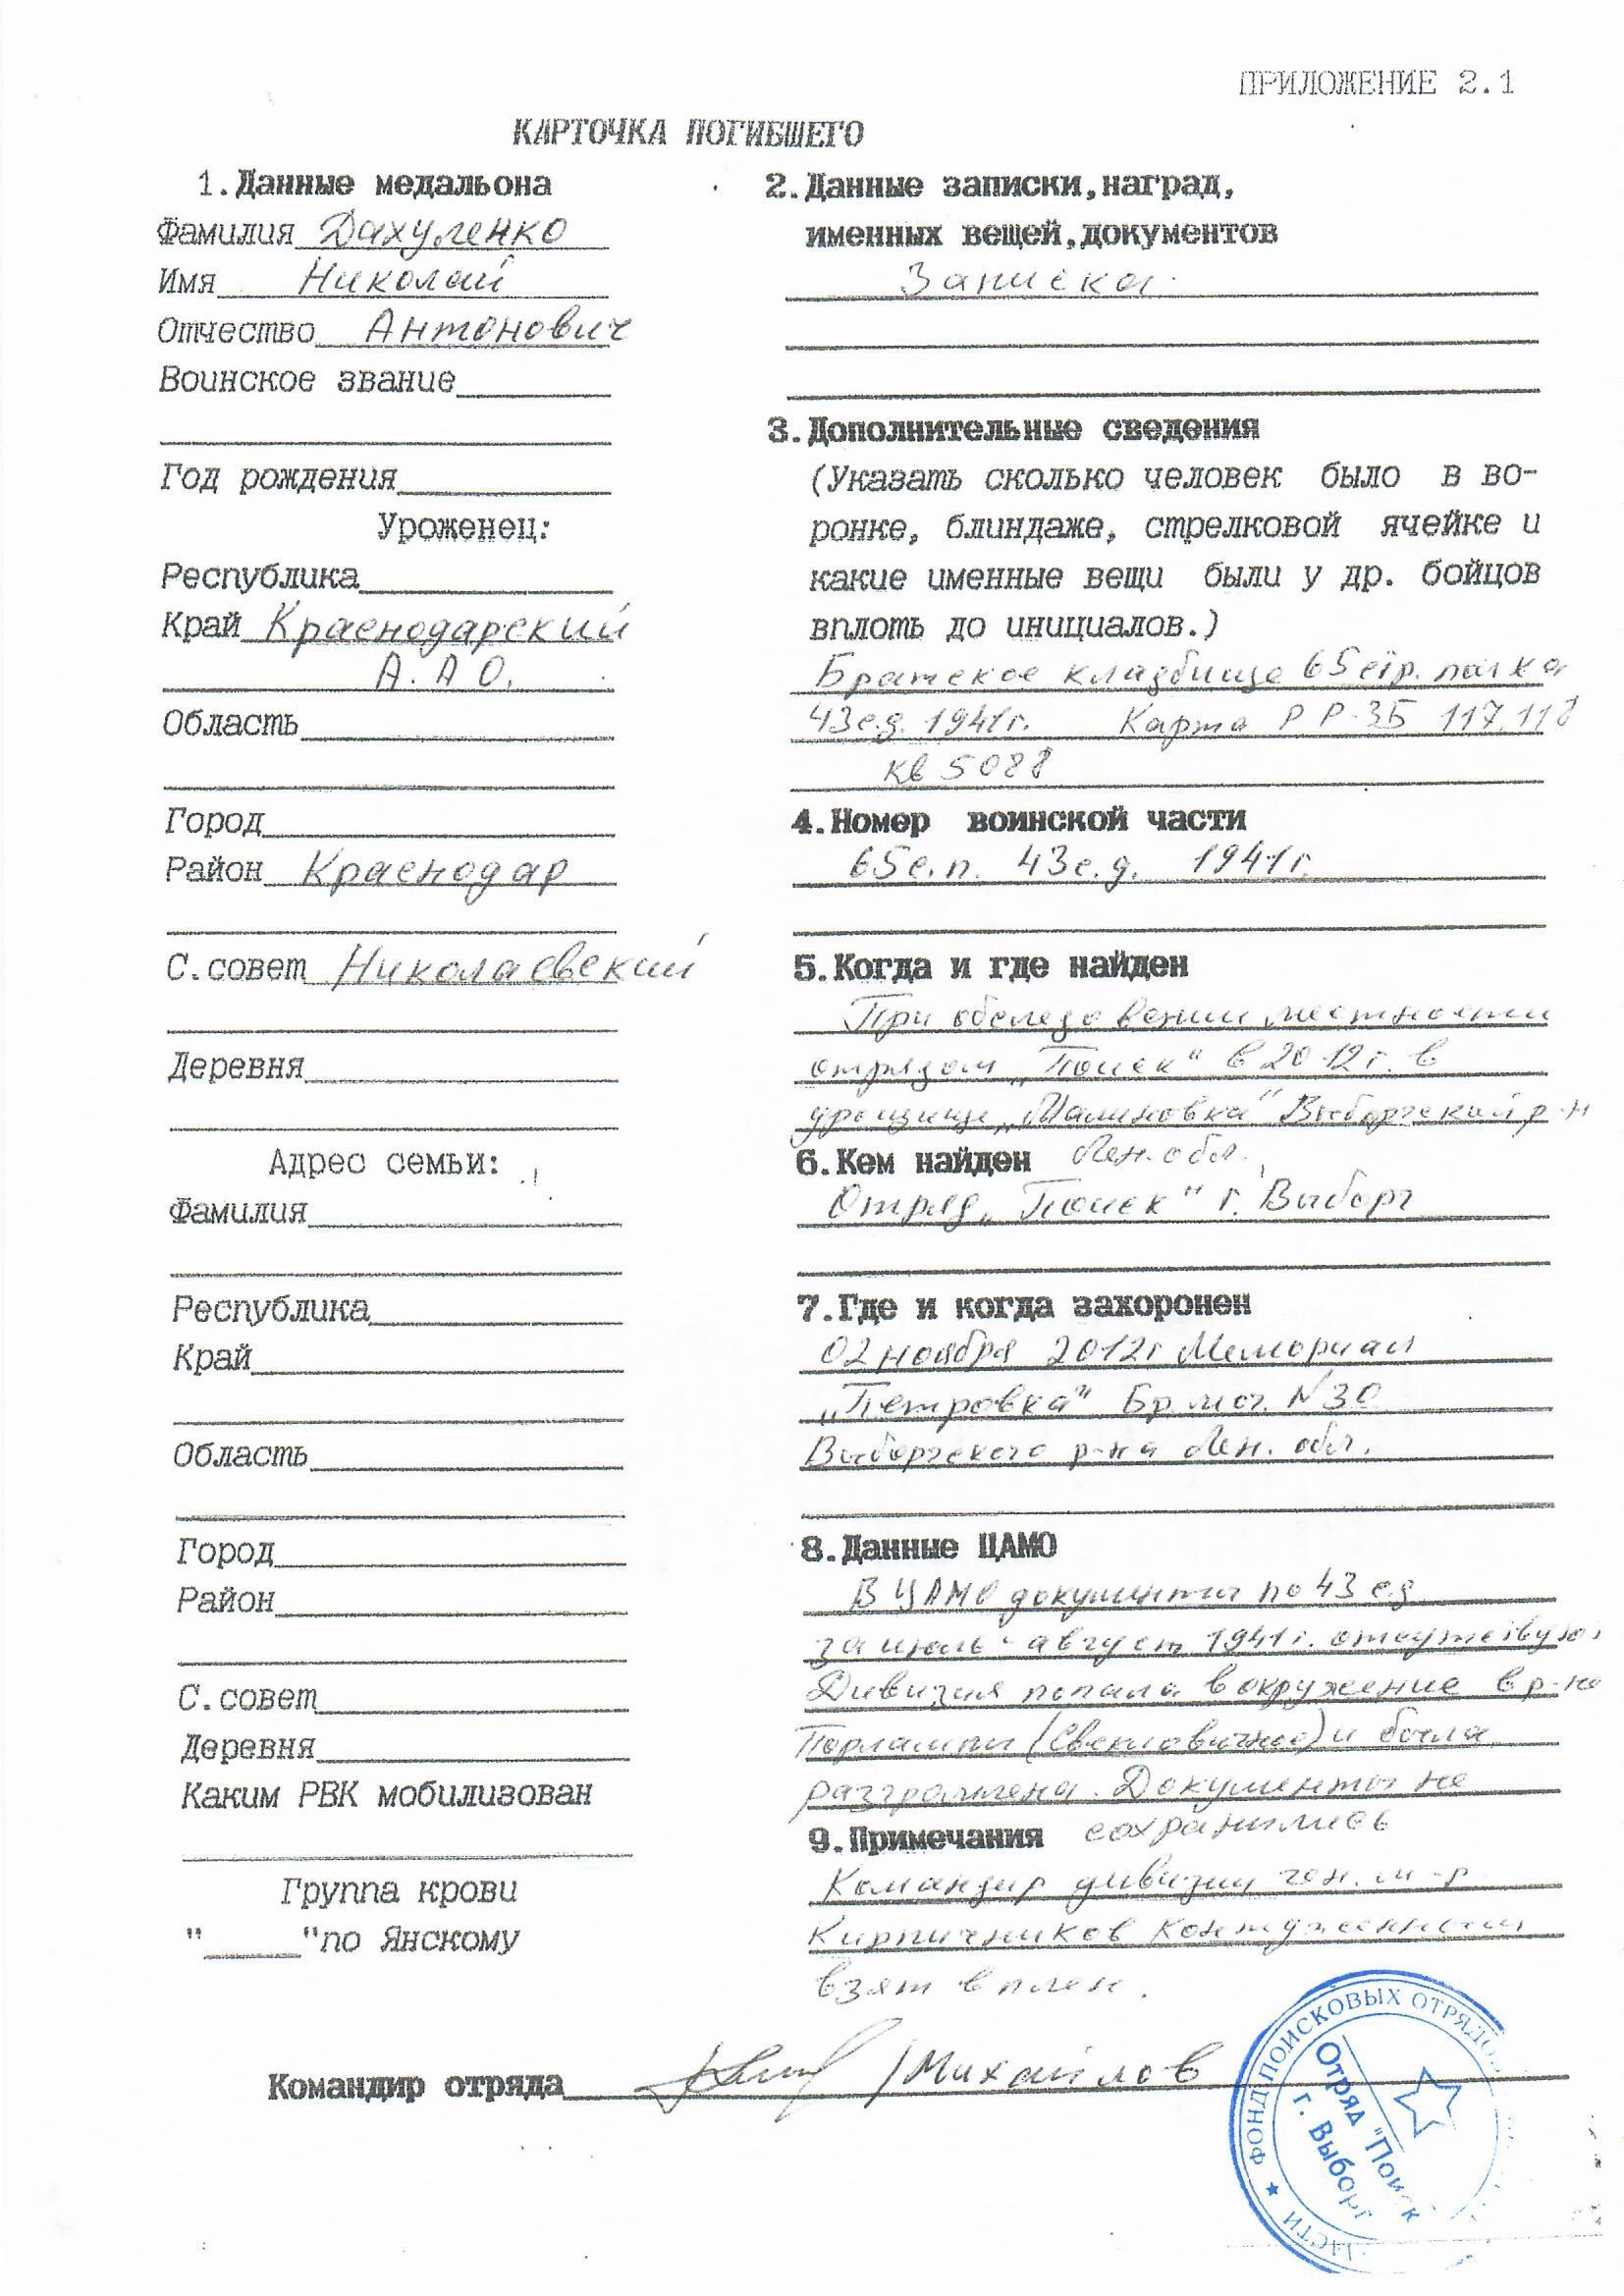 ПРИЛОЖЕНИЕ 2.1
КАРТОЧКА ПОГИБШЕГО
1.Данные медальона
Фамилия Дахуленко
Имя Николай
Отчество Антонович
Воинское звание
Год рождения
Уроженец:
Республика
Край Краснодарский
А.АО.
Область
Город
Район Краснодар
С.совет Николаевский
Деревня
Адрес семьи:
Фамилия
Республика
Край
Область
Город
Район
С.совет
Деревня
Каким РВК мобилизован
Группа крови
"    "по Янскому
2.Данные записки,наград,
именных вещей,документов
Записка
3.Дополнительные сведения
(Указать сколько человек было в во-
ронке, блиндаже, стрелковой ячейке и
какие именные вещи были у др. бойцов
вплоть до инициалов.)
Братское кладбище 65 стр. полка
43с.д. 1941г. Карта РР-35 117.118
кв 5088
4.Номер воинской части
65с.п. 43с.д. 1941г.
5.Когда и где найден
При обследовании местности
отрядом „Поиск" в 2012г. в
урочище „Малиновка" Выборгский р-н
Лен.обл.
6.Кем найден
Отряд „Поиск" г. Выборг
7.Где и когда захоронен
02 ноября 2012г Мемориал
„Петровка" Бр.мог. N30
Выборгского р-на Лен. обл.
8.Данные ЦАМО
В ЦАМО документы по 43 сд
за июль-август 1941г. отсутствую
Дивизия попала в окружение в р-не
Порлампи (Свекловичное) и была
разгромлена. Документы не
сохранились
9.Примечания
Командир дивизии ген. м-р
Кирпичников контуженный
взят в плен.
Командир отряда /Михайлов
ФОНД ПОИСКОВЫХ ОТРЯДО
Отряд "Поиск
г. Выборг